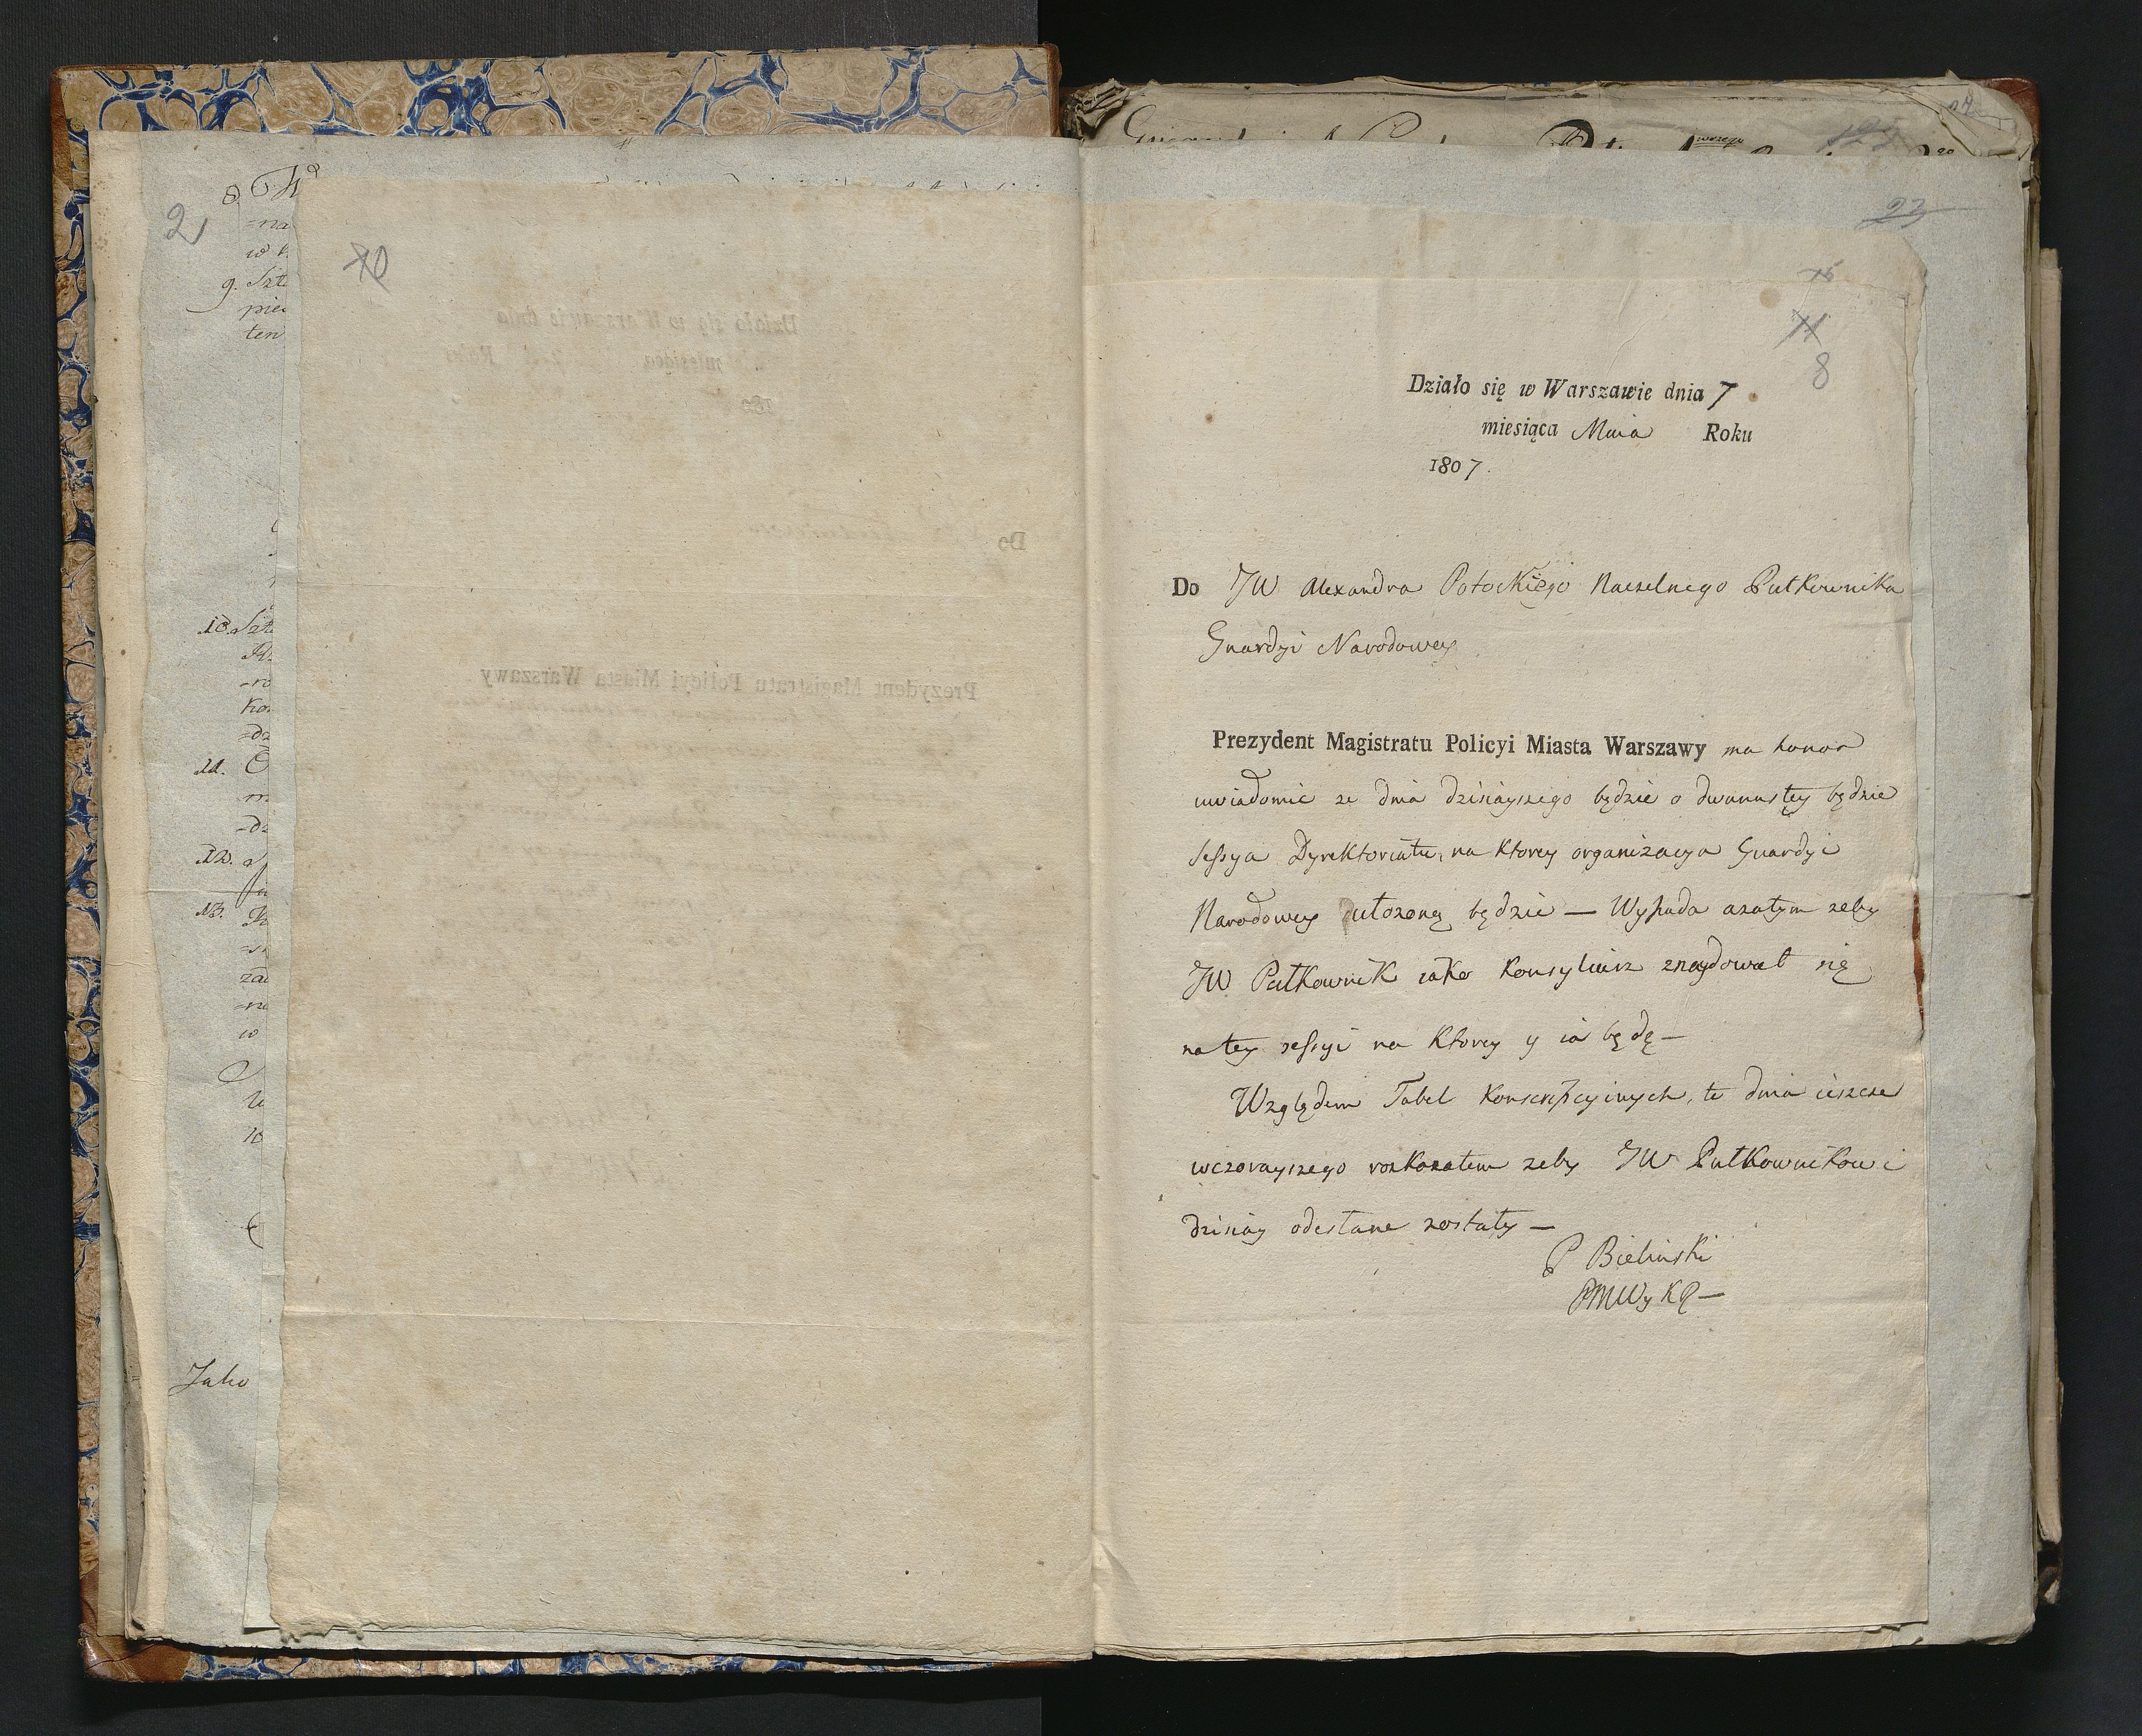 2
8
9. Szt
pie
ten
10. Szt
11.
12.
Jako
10
23
11
8
Działo się w Warszawie dnia 7
miesiąca Maia Roku
1807.
Do JW Alexandra Potockiego Naczelnego Pułkownika
Gwardyi Narodowey
Prezydent Magistratu Policyi Miasta Warszawy ma honor
uwiadomic ze dnia dzisiayszego będzie o dwunastey będzie
sessya Dyrektoriatu, na ktorey organizacya Gwardyi
Narodowey ułozoną będzie — Wypada azatym zeby
JW Pułkownik iako Konsyliarz znaydował się
na tey sessyi na ktorey y ia będę —
Względem Tabel Konskrypcyinych, te dnia ieszcze
wczorayszego rozkazałem zeby JW Pułkownikowi
dzisiay odesłane zostały —
P Bieliński
PMWyKP —